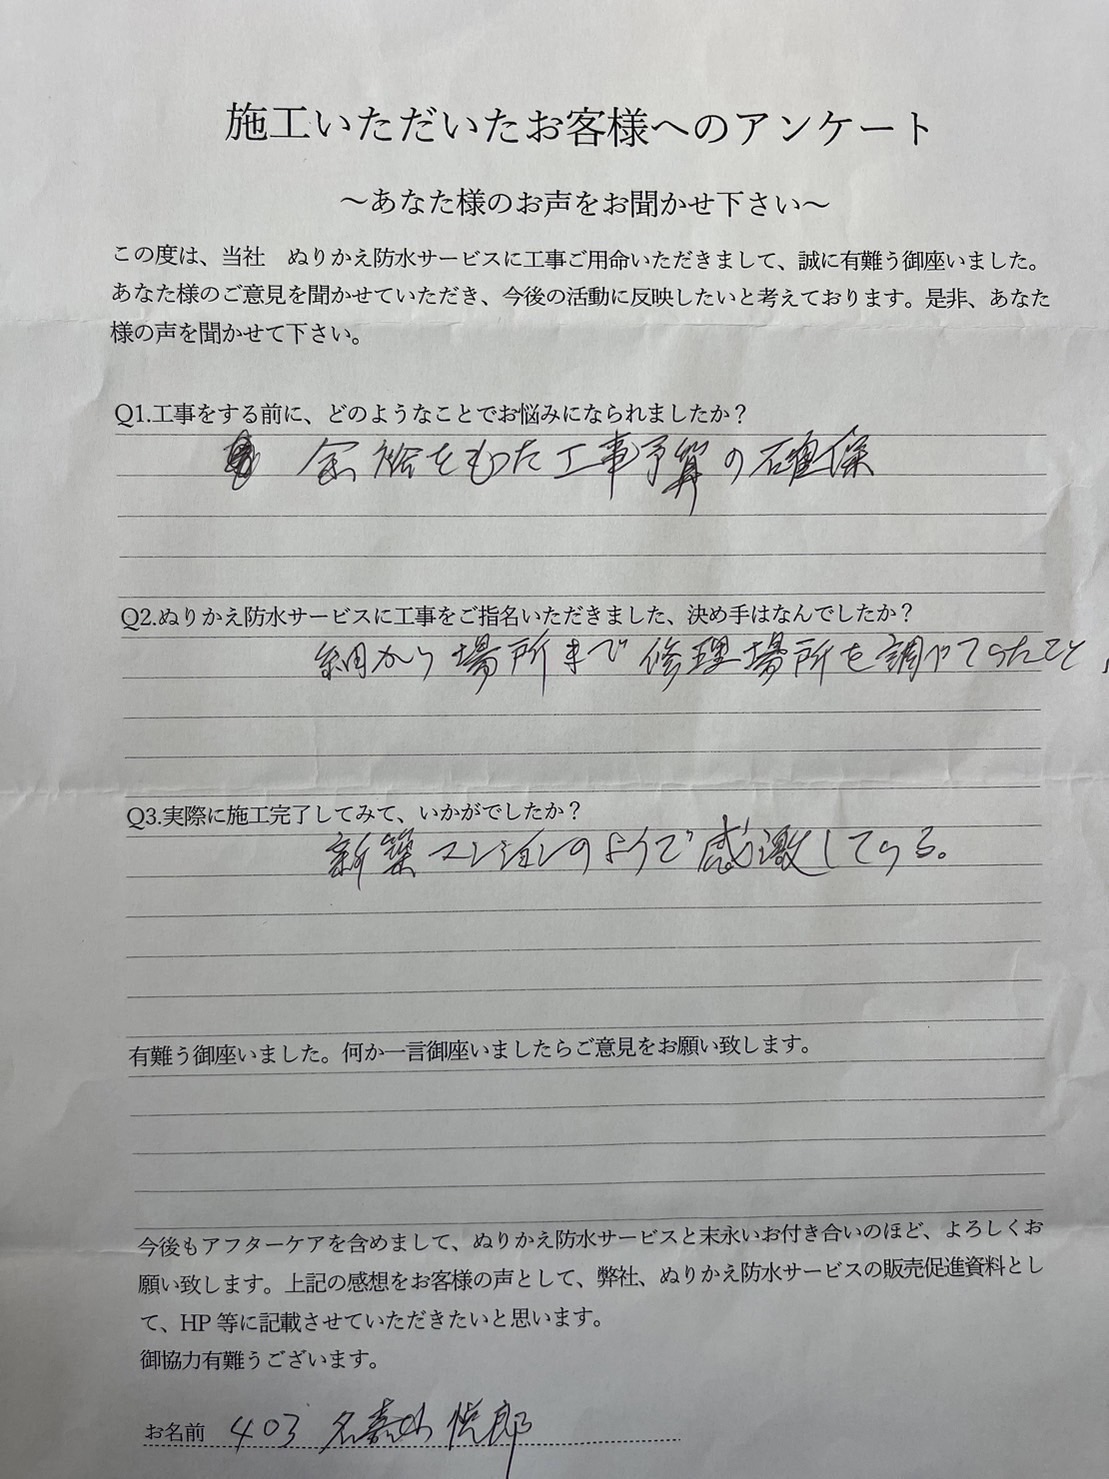 施工いただいたお客様へのアンケート
～あなた様のお声をお聞かせ下さい～
この度は、当社　ぬりかえ防水サービスに工事ご用命いただきまして、誠に有難う御座いました。
あなた様のご意見を聞かせていただき、今後の活動に反映したいと考えております。是非、あなた
様の声を聞かせて下さい。
Q1.工事をする前に、どのようなことでお悩みになられましたか？
余裕をもった工事予算の確保
Q2.ぬりかえ防水サービスに工事をご指名いただきました、決め手はなんでしたか？
細かい場所まで修理場所を調べていたこと
Q3.実際に施工完了してみて、いかがでしたか？
新築マンションのようで感激している。
有難う御座いました。何か一言御座いましたらご意見をお願い致します。
今後もアフターケアを含めまして、ぬりかえ防水サービスと末永いお付き合いのほど、よろしくお
願い致します。上記の感想をお客様の声として、弊社、ぬりかえ防水サービスの販売促進資料とし
て、HP 等に記載させていただきたいと思います。
御協力有難うございます。
お名前 403 名嘉